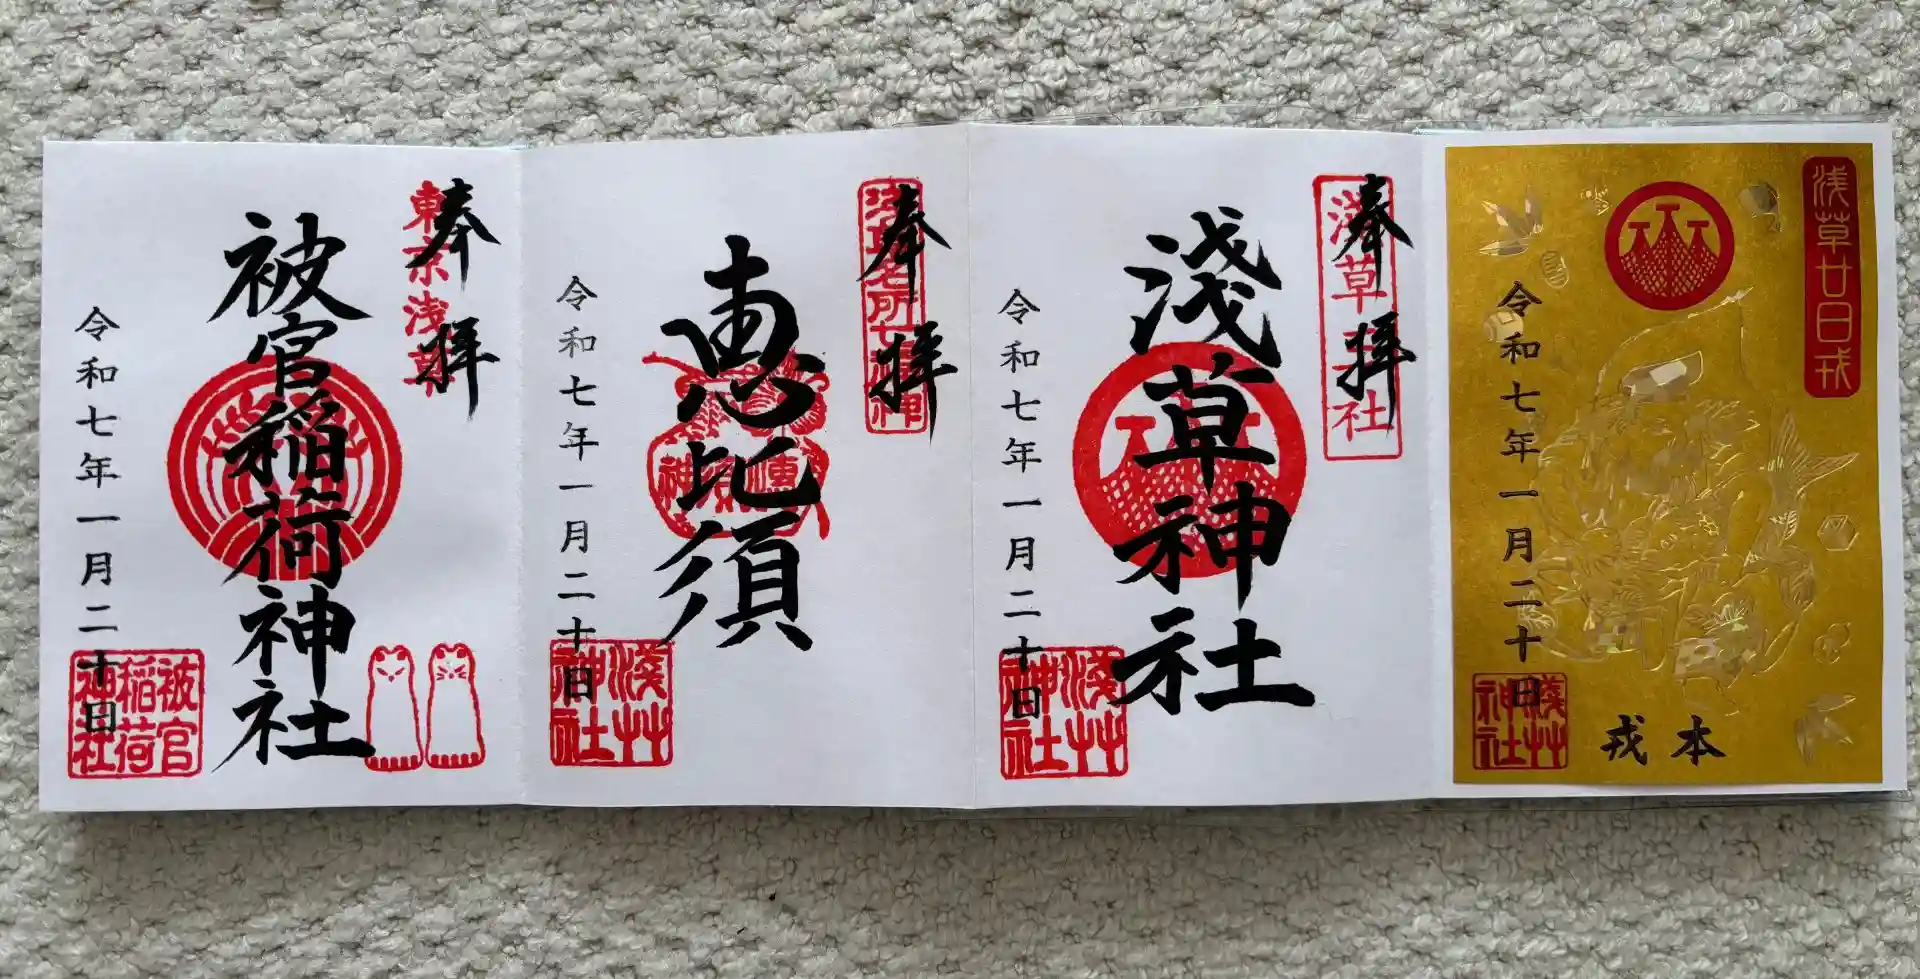 浅草廿日戎
令和七年一月二十日
淺草神社
本戎
奉拝
淺草神社
淺草神社
令和七年一月二十日
淺草神社
奉拝
浅草名所七福神
恵比須
令和七年一月二十日
淺草神社
奉拝
東京浅草
被官稲荷神社
令和七年一月二十日
被官稲荷神社